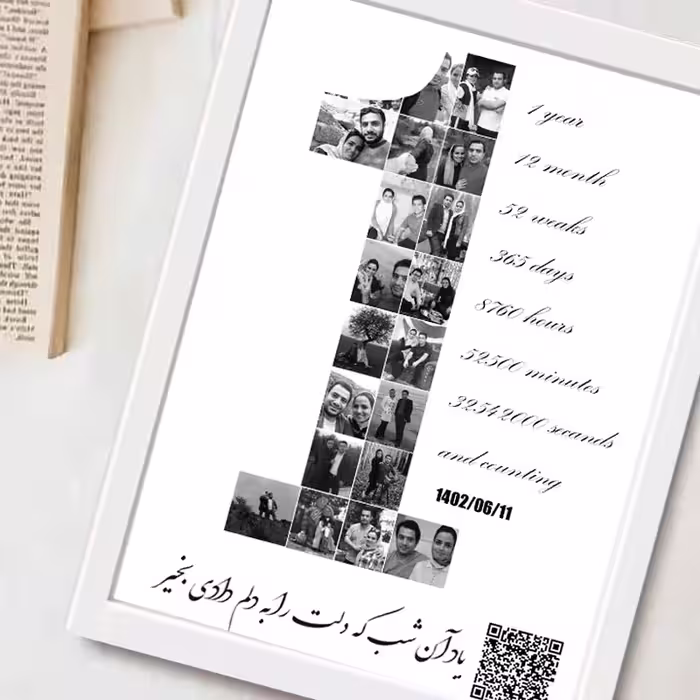 1 year
12 month
52 weaks
365 days
8760 hours
52500 minutes
32542000 secands
and counting
1402/06/11
یاد آن شب که دلت را به دلم دادی بخیر